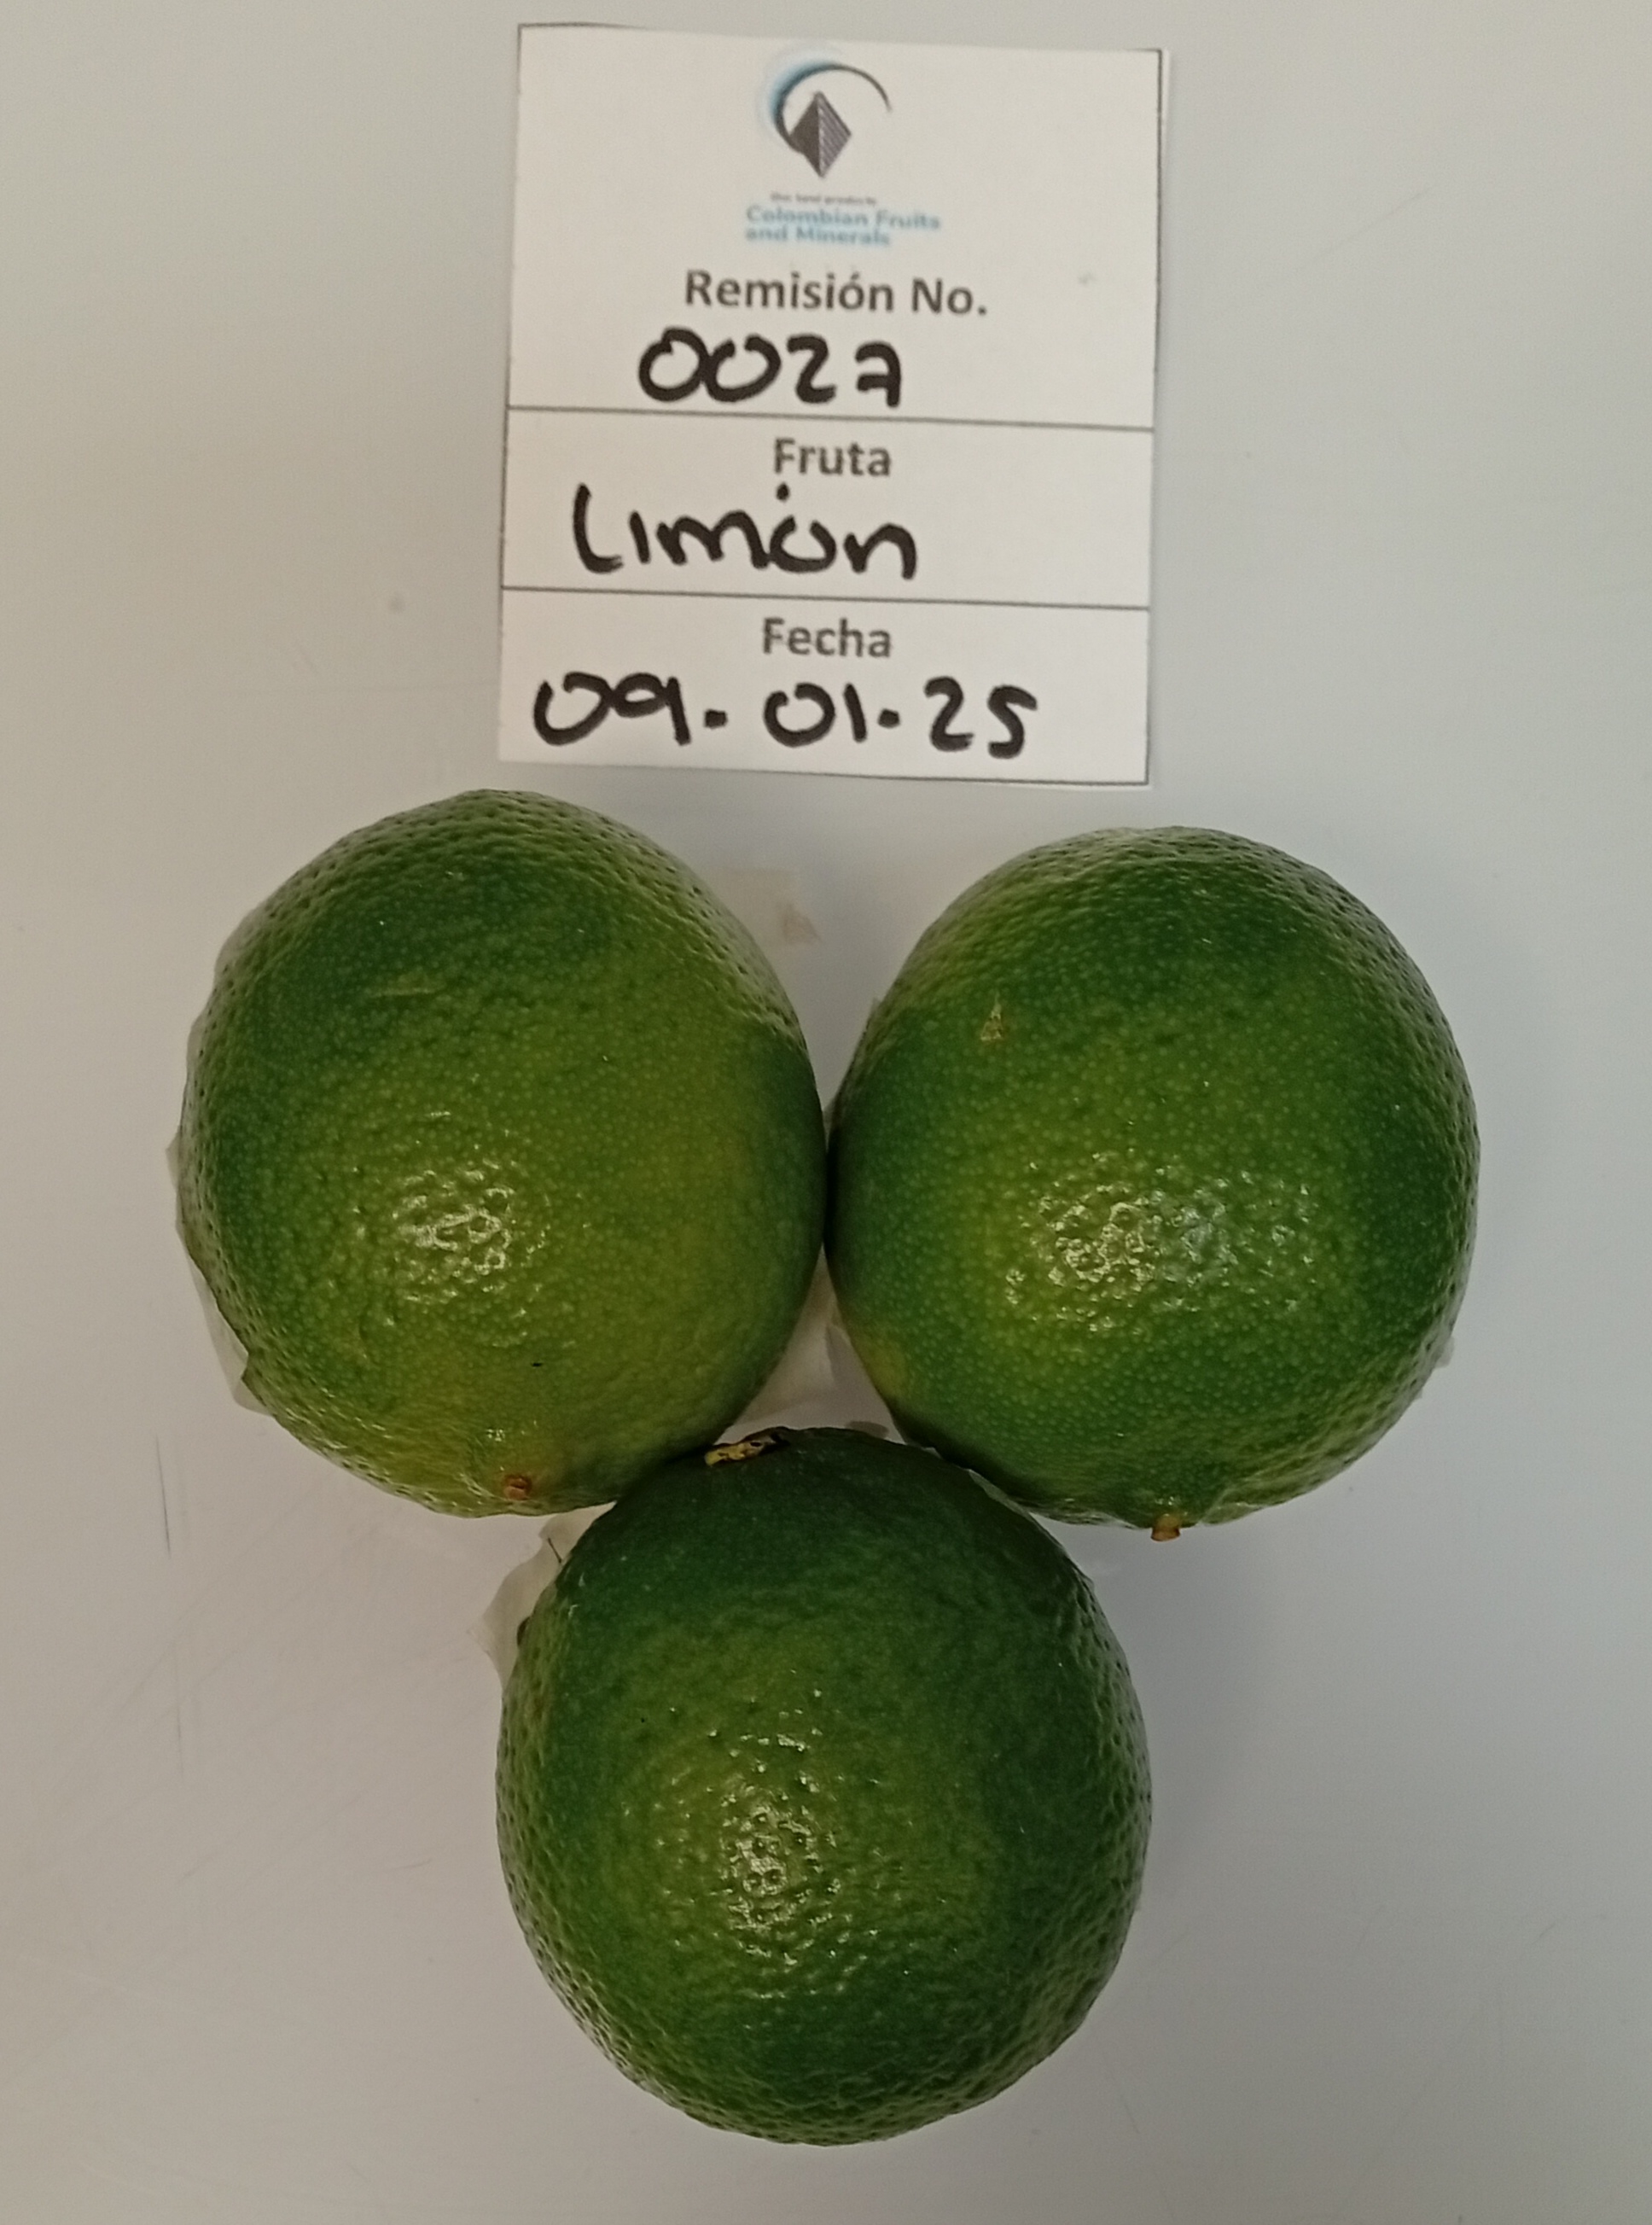 Our land products
Colombian Fruits
and Minerals
Remisión No.
0027
Fruta
Limón
Fecha
09.01.25